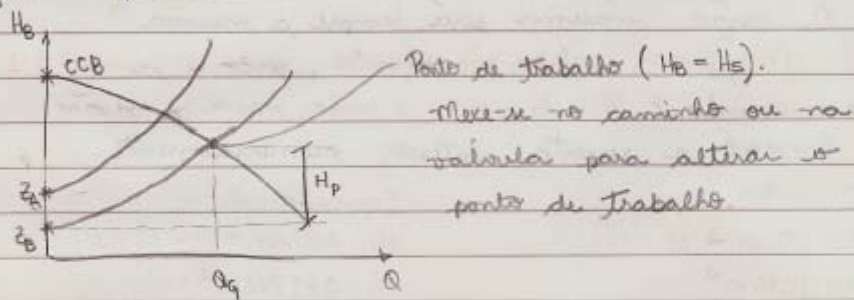 H_B
CCB
Ponto de trabalho (H_B = H_S).
Mexe-se no caminho ou na
válvula para alterar o
ponto de trabalho.
Z_A
H_p
Z_B
Q